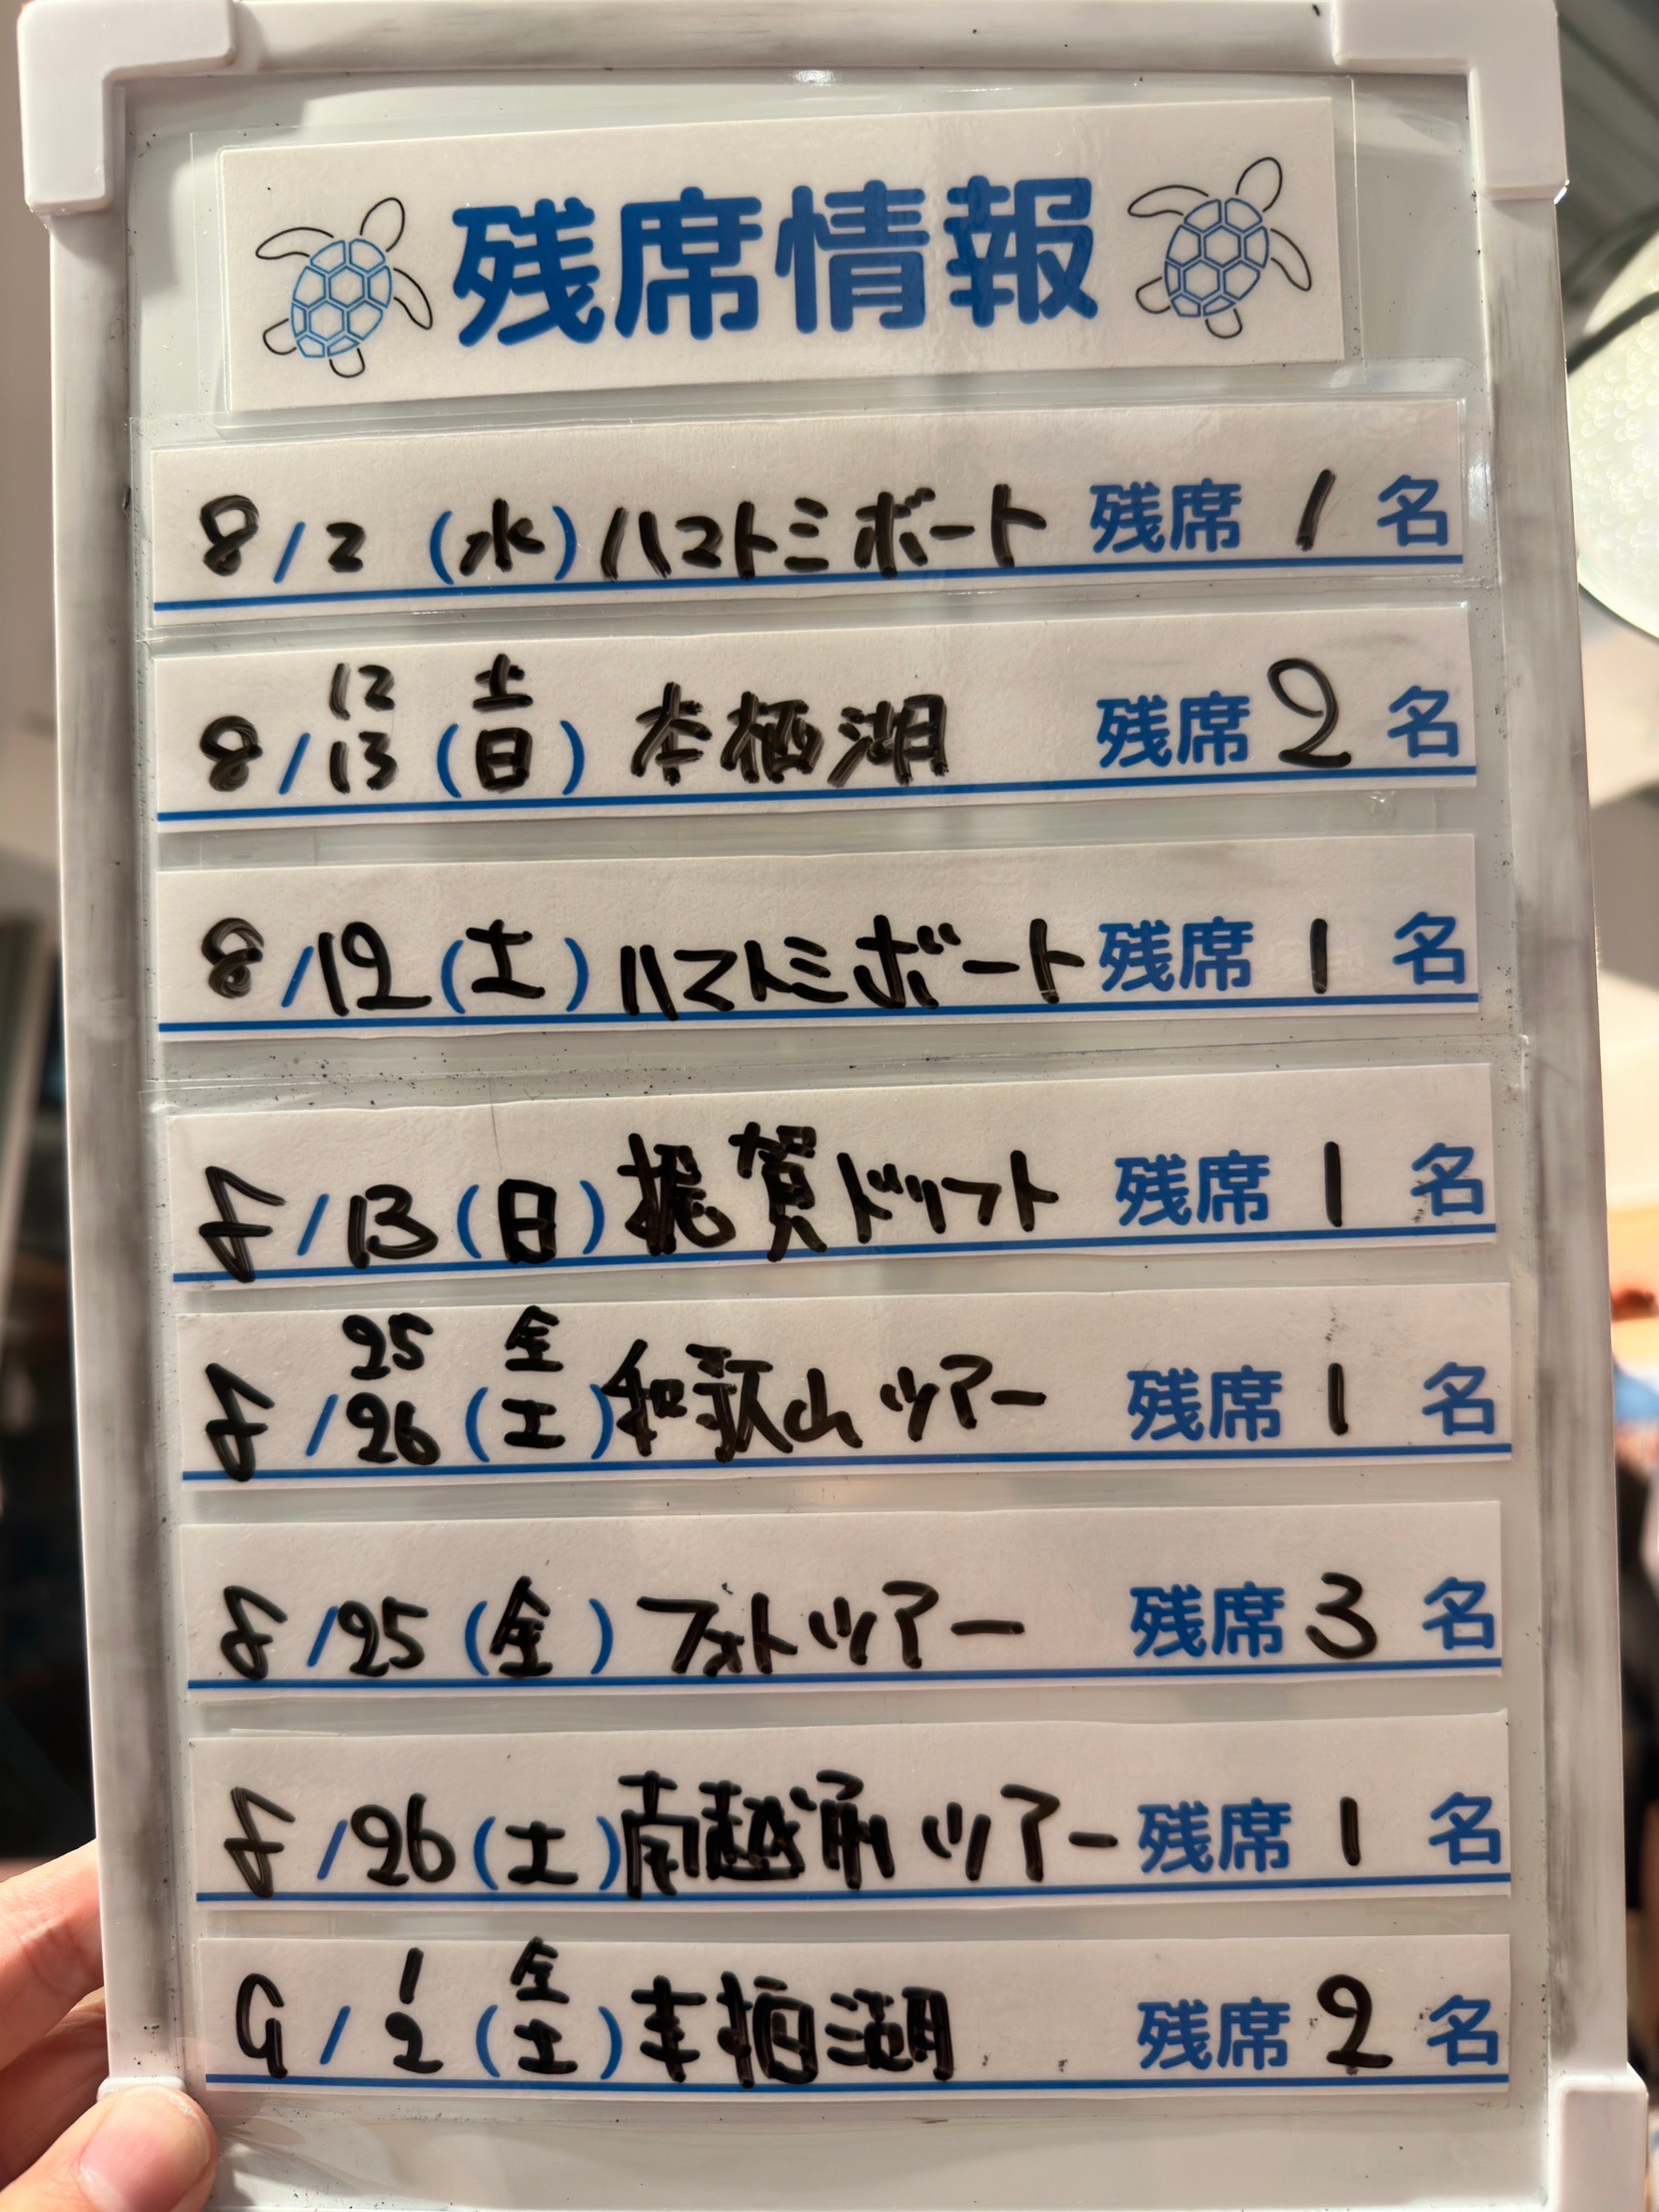 残席情報
8/2(水)ハマトミボート 残席1名
12 土
8/13(日)本栖湖 残席2名
8/12(土)ハマトミボート残席1名
8/13(日)梶賀ドリフト 残席1名
25 金
8/26(土)和歌山ツアー 残席1名
8/25(金)フォトツアー 残席3名
8/26(土)南越前ツアー残席1名
1 金
9/2(土)本栖湖 残席2名